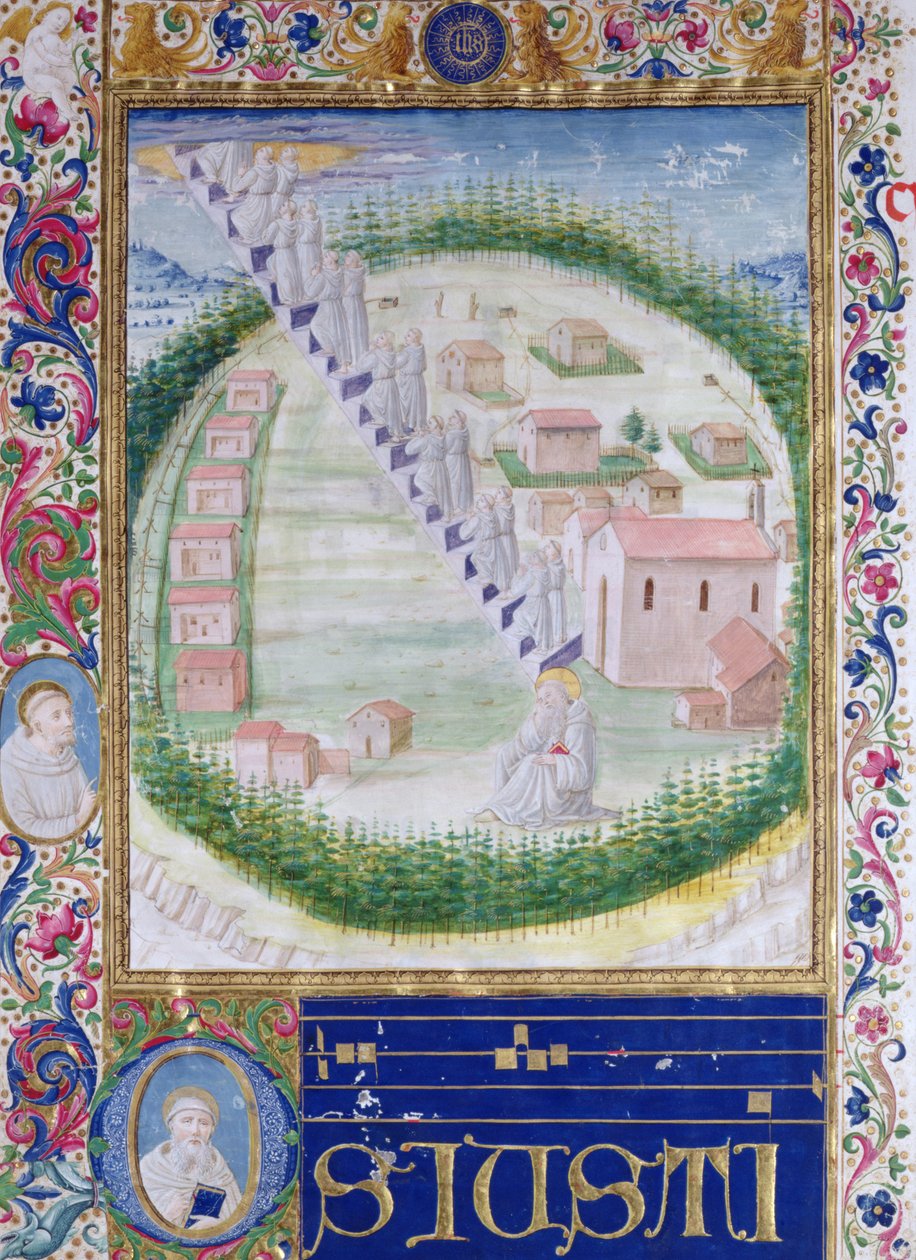 yhs
OS IUSTI